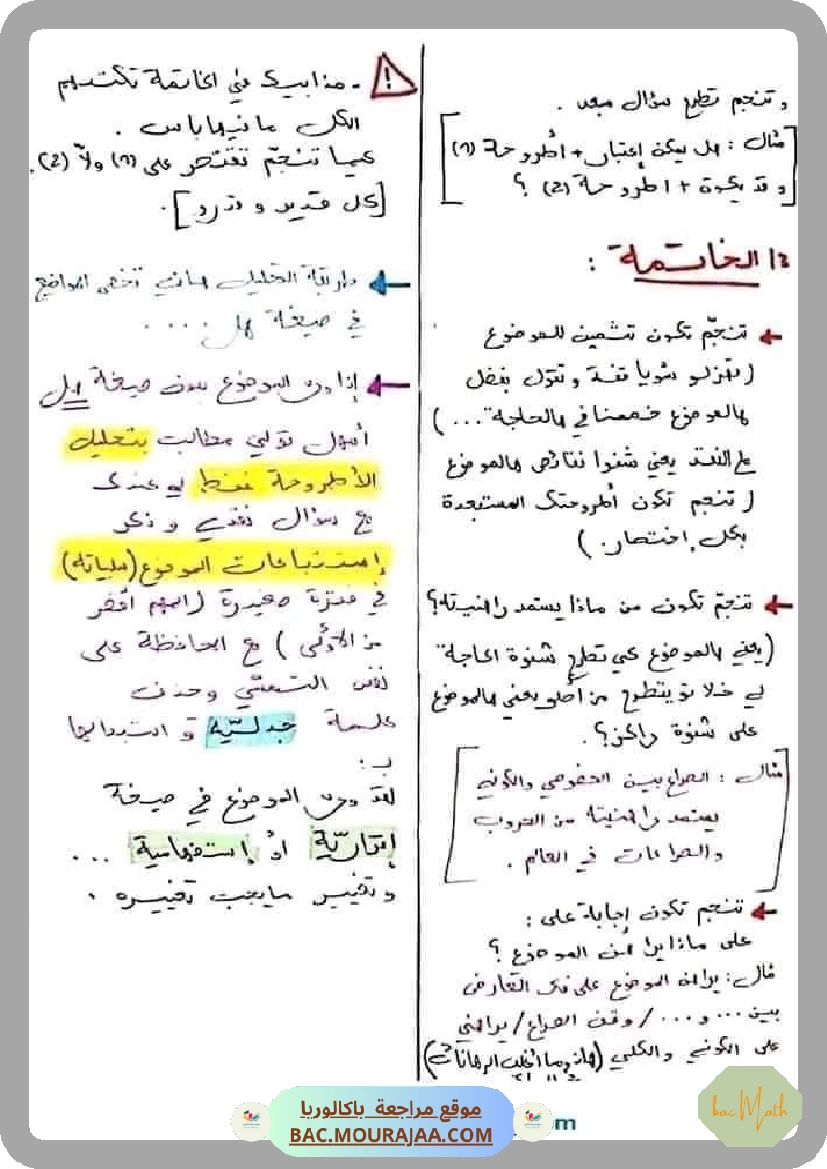 و تنجم تطرح سؤال مبعد .
مثال : هل يمكن إعتبار + أطروحة (1)
و قد يكون + أطروحة (2) ؟
13 الخاتمة :
تنجّم تكون تثمين للموضوع
( تهزلو شويا تفة و تقول بفضل
هالموضوع فهمنا في هالحاجة ... )
ولا نقد يعني شنوا نتائص هالموضوع
( تنجم تكون أطروحتك المستبعدة
بكل إختصار )
تنجّم تكون من ماذا يستمد راهنيته؟
(يعني هالموضوع كي تطرح شنوة الحاجة
لي خلاتو يتطرح من أصلو يعني هالموضوع
على شنوة راكز؟ .
مثال : الصراع بين الخصوصي والكوني
يستمد راهنيته من الحروب
والصراعات في العالم .
تنجم تكون إجابة على :
على ماذا يراهن الموضوع ؟
مثال: يراهن الموضوع على فك التعارض
بين ... و ... / وقف الصراع / يراهن
على الكوني والكلي (هاذوما أغلب الرهانات)
! . هذابيك في الخاتمة تكتبهم
الكل ما فيها باس .
كيما تنجّم تقتصر على (1) ولاّ (2).
[كل قدير و قدرو].
طريقة التحليل هاذي تخص المواضيع
في صيغة هل ....
إذا ورد الموضوع بدون صيغة هل
أسهل تولي مطالب بتحليل
الأطروحة فقط لي عندك
مع سؤال نقدي و ذكر
إستتباعات الموضوع (سلبياته)
في فقرة صغيرة (المهم أقصر
من الأولى ) مع المحافظة على
نفس التمشي وحذف
كلمة جدليّة و استبدالها
بـ :
لقد ورد الموضوع في صيغة
إقراريّة أو إستفهامية ...
وتغيير ما يجب تغييره .
موقع مراجعة باكالوريا
BAC.MOURAJAA.COM
bac Math